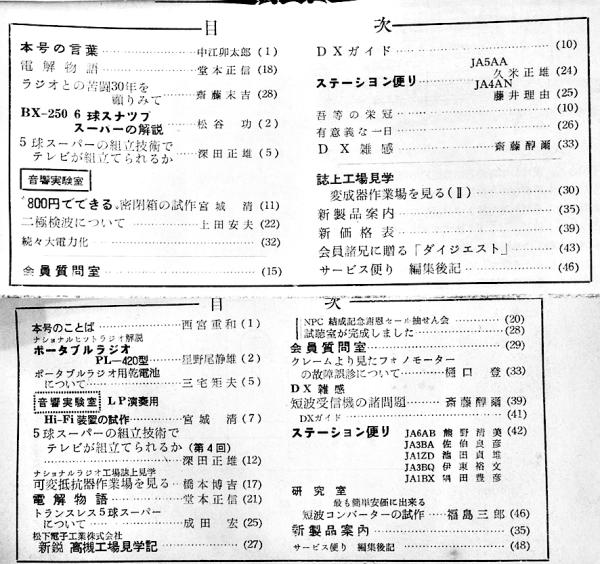 目 次
本号の言葉 中江卯太郎 (1)
電解物語 堂本正信 (18)
ラジオとの苦闘30年を
顧りみて 斎藤末吉 (28)
BX-250 6球スナップ
スーパーの解説 松谷 功 (2)
5球スーパーの組立技術で
テレビが組立てられるか 深田正雄 (5)
音響実験室
"800円でできる"密閉箱の試作 宮城 清 (11)
二極検波について 上田安夫 (22)
続々大電力化 (32)
会員質問室 (15)
DXガイド (10)
JA5AA
ステーション便り 久米正雄 (24)
JA4AN
藤井理由 (25)
吾等の栄冠 (10)
有意義な一日 (26)
DX雑感 斎藤醇爾 (33)
誌上工場見学
変成器作業場を見る(Ⅱ) (30)
新製品案内 (35)
新価格表 (39)
会員諸兄に贈る「ダイジェスト」 (43)
サービス便り 編集後記 (46)
目 次
本号のことば 西宮重和 (1)
ナショナルヒットラジオ解説
ポータブルラジオ
PL-420型 星野尾静雄 (2)
ポータブルラジオ用乾電池
について 三宅矩夫 (5)
音響実験室 LP演奏用
Hi-Fi装置の試作 宮城 清 (7)
5球スーパーの組立技術で
テレビが組立てられるか(第4回)
深田正雄 (12)
ナショナルラジオ工場誌上見学
可変抵抗器作業場を見る 橋本博吉 (17)
電解物語 堂本正信 (21)
トランスレス5球スーパー
について 成田 宏 (25)
松下電子工業株式会社
新鋭 高槻工場見学記 (27)
NPC 結成記念謝恩セール抽せん会 (20)
試聴室が完成しました (28)
会員質問室 (29)
クレームより見たフォノモーター
の故障誤診について 樋口 登 (33)
DX雑感
短波受信機の諸問題 斎藤醇爾 (39)
DXガイド (41)
ステーション便り JA6AB 熊野清美 (42)
JA3BA 佐伯良彦
JA1ZD 池田貞雄
JA3BQ 伊東裕文
JA1BX 鍋田豊彦
研究室
最も簡単安価に出来る
短波コンバーターの試作 福島三郎 (46)
新製品案内 (35)
サービス便り 編集後記 (48)